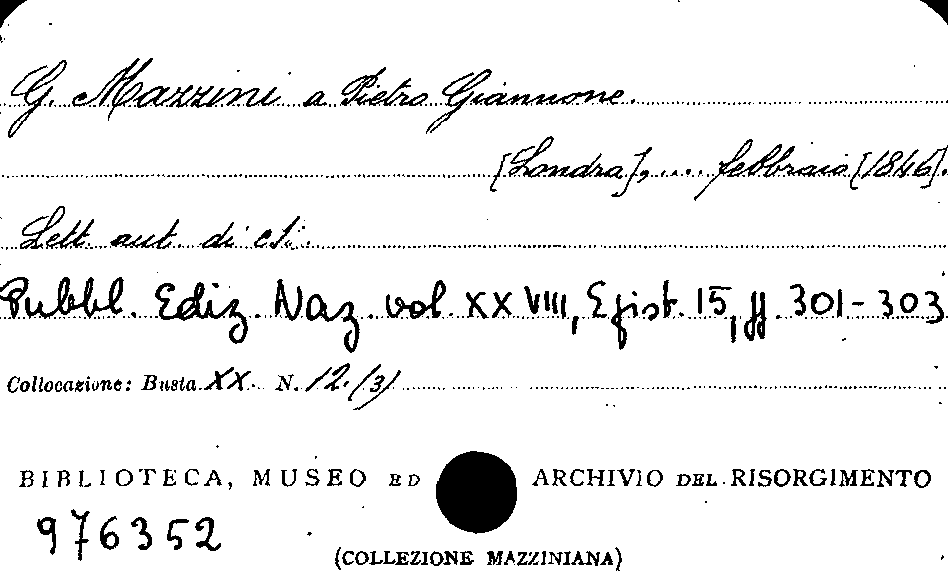 G. Mazzini a Pietro Giannone.
[Londra], .... febbraio [1846].
Lett. aut. di
Pubbl. Ediz. Naz. vol. XXVIII, Epist. 15, pp. 301-303
Collocazione: Busta XX. N. 12/(3)
BIBLIOTECA, MUSEO ED ARCHIVIO DEL RISORGIMENTO
976352
(COLLEZIONE MAZZINIANA)